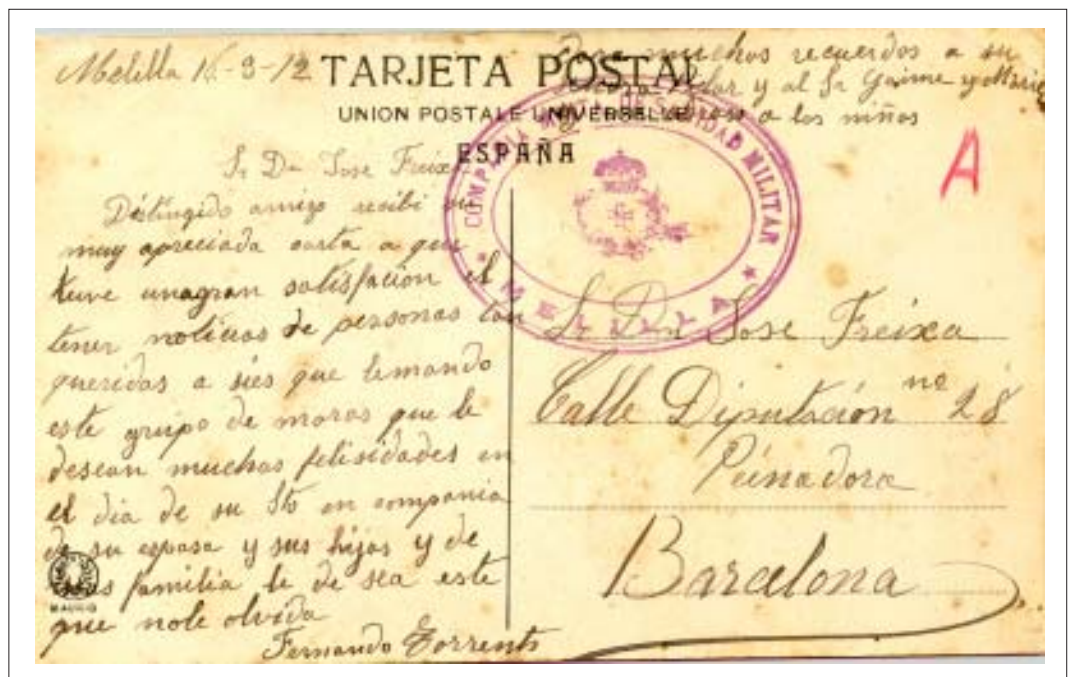 Melilla 16-3-12
TARJETA POSTAL
UNION POSTALE UNIVERSELLE
ESPAÑA
muchos recuerdos a su
y al Sr Gaime y Maria
a los niños
A
COMPAÑIA MIXTA DE SANIDAD MILITAR
★ MELILLA ★
Sr Dn Jose Freixa
Distingido amigo recibi su
muy apreciada carta a que
tuve unagran satisfacion el
tener noticias de personas tan
queridas a sies que lemando
este grupo de moras que le
desean muchas felisidades en
el dia de su Sto en compania
de su esposa y sus hijos y de
mas familia le de sea este
que nole olvida
Fernando Torrents
Sr Don Jose Freixa
Calle Diputación nº 28
Peinadora
Barcelona
MADRID